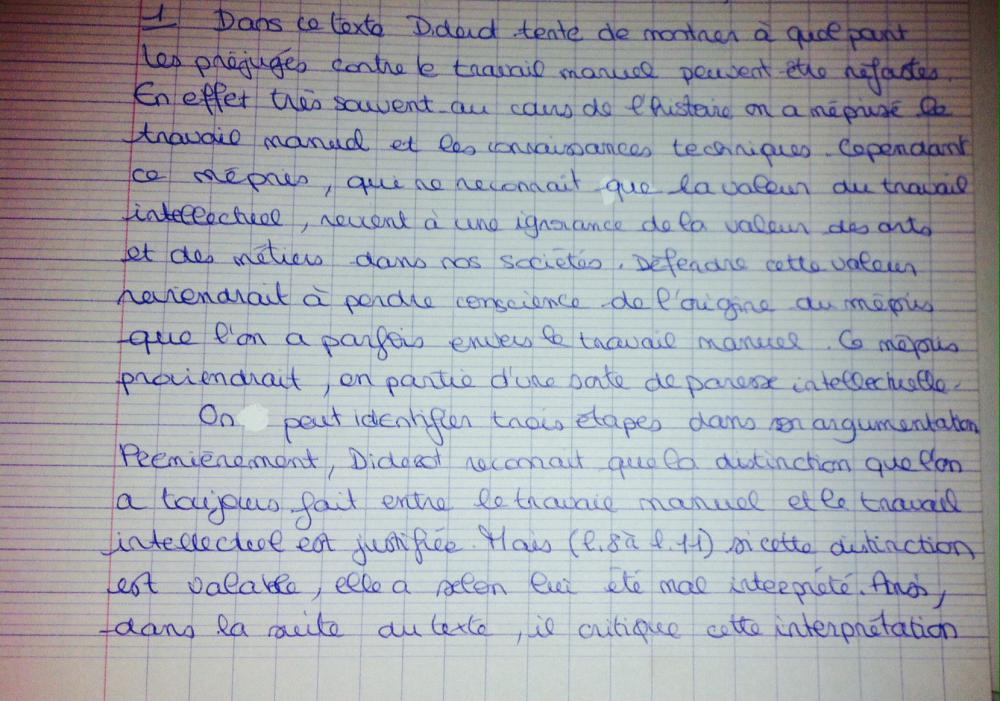 1 Dans ce texte Diderot tente de montrer à quel point
les préjugés contre le travail manuel peuvent être néfastes.
En effet très souvent au cours de l'histoire on a méprisé le
travail manuel et les connaissances techniques. Cependant
ce mépris, qui ne reconnait que la valeur du travail
intellectuel, revient à une ignorance de la valeur des arts
et des métiers dans nos sociétés. Défendre cette valeur
reviendrait à perdre conscience de l'origine du mépris
que l'on a parfois envers le travail manuel. Ce mépris
proviendrait, en partie d'une sorte de paresse intellectuelle.
On peut identifier trois étapes dans son argumentation
Premièrement, Diderot reconait que la distinction que l'on
a toujours fait entre le travail manuel et le travail
intellectuel est justifiée. Mais (l.8 à l.11) si cette distinction
est valable, elle a selon lui été mal interprété. Ainsi,
dans la suite du texte, il critique cette interprétation